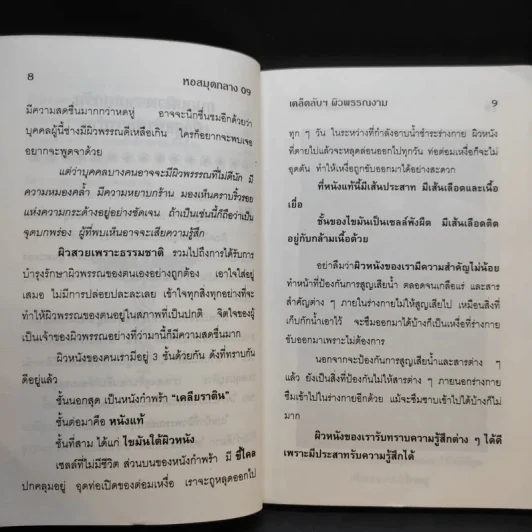 8
หอสมุดกลาง 09
มีความสดชื่นมากกว่าหดหู่ อาจจะนึกชื่นชมอีกด้วยว่า
บุคคลผู้นี้ช่างมีผิวพรรณดีเหลือเกิน ใครก็อยากจะพบเจอ
อยากจะพูดจาด้วย
แต่ว่าบุคคลบางคนอาจจะมีผิวพรรณที่ไม่ดีนัก มี
ความหมองคล้ำ มีความหยาบกร้าน มองเห็นคราบริ้วรอย
แห่งความกระด้างอยู่อย่างชัดเจน ถ้าเป็นเช่นนี้ก็ถือว่าเป็น
จุดบกพร่อง ผู้ที่พบเห็นอาจจะเสียความรู้สึก
ผิวสวยเพราะธรรมชาติ รวมไปถึงการได้รับการ
บำรุงรักษาผิวพรรณของตนเองอย่างถูกต้อง เอาใจใส่อยู่
เสมอ ไม่มีการปล่อยปละละเลย เข้าใจทุกสิ่งทุกอย่างที่จะ
ทำให้ผิวพรรณของตนอยู่ในสภาพที่เป็นปกติ จิตใจของผู้
เป็นเจ้าของผิวพรรณอย่างที่ว่ามานี้ก็มีความสดชื่นมาก
ผิวหนังของคนเรามีอยู่ 3 ชั้นด้วยกัน ดังที่ทราบกัน
ดีอยู่แล้ว
ชั้นนอกสุด เป็นหนังกำพร้า “เคลียราติน”
ชั้นต่อมาคือ หนังแท้
ชั้นที่สาม ได้แก่ ไขมันใต้ผิวหนัง
เซลล์ที่ไม่มีชีวิต ส่วนบนของหนังกำพร้า มี ขี้ไคล
ปกคลุมอยู่ อุดท่อเปิดของต่อมเหงื่อ เราจะถูหลุดออกไป
เคล็ดลับฯ ผิวพรรณงาม
9
ทุก ๆ วัน ในระหว่างที่กำลังอาบน้ำชำระร่างกาย ผิวหนัง
ที่ตายไปแล้วจะหลุดล่อนออกไปทุกวัน ท่อต่อมเหงื่อก็จะไม่
อุดตัน ทำให้เหงื่อถูกขับออกมาได้อย่างสะดวก
ที่หนังแท้นี้มีเส้นประสาท มีเส้นเลือดและเนื้อ
เยื่อ
ชั้นของไขมันเป็นเซลล์พังผืด มีเส้นเลือดติด
อยู่กับกล้ามเนื้อด้วย
อย่าลืมว่าผิวหนังของเรามีความสำคัญไม่น้อย
ทำหน้าที่ป้องกันการสูญเสียน้ำ ตลอดจนเกลือแร่ และสาร
สำคัญต่าง ๆ ภายในร่างกายไม่ให้สูญเสียไป เหมือนสิ่งที่
เก็บกักน้ำเอาไว้ จะซึมออกมาได้บ้างก็เป็นเหงื่อที่ร่างกาย
ขับออกมาเพราะไม่ต้องการ
นอกจากจะป้องกันการสูญเสียน้ำและสารต่าง ๆ
แล้ว ยังเป็นสิ่งที่ป้องกันไม่ให้สารต่าง ๆ ภายนอกร่างกาย
ซึมเข้าไปในร่างกายอีกด้วย แม้จะซึมซาบเข้าไปได้บ้างก็ไม่
มาก
ผิวหนังของเรารับทราบความรู้สึกต่าง ๆ ได้ดี
เพราะมีประสาทรับความรู้สึกได้